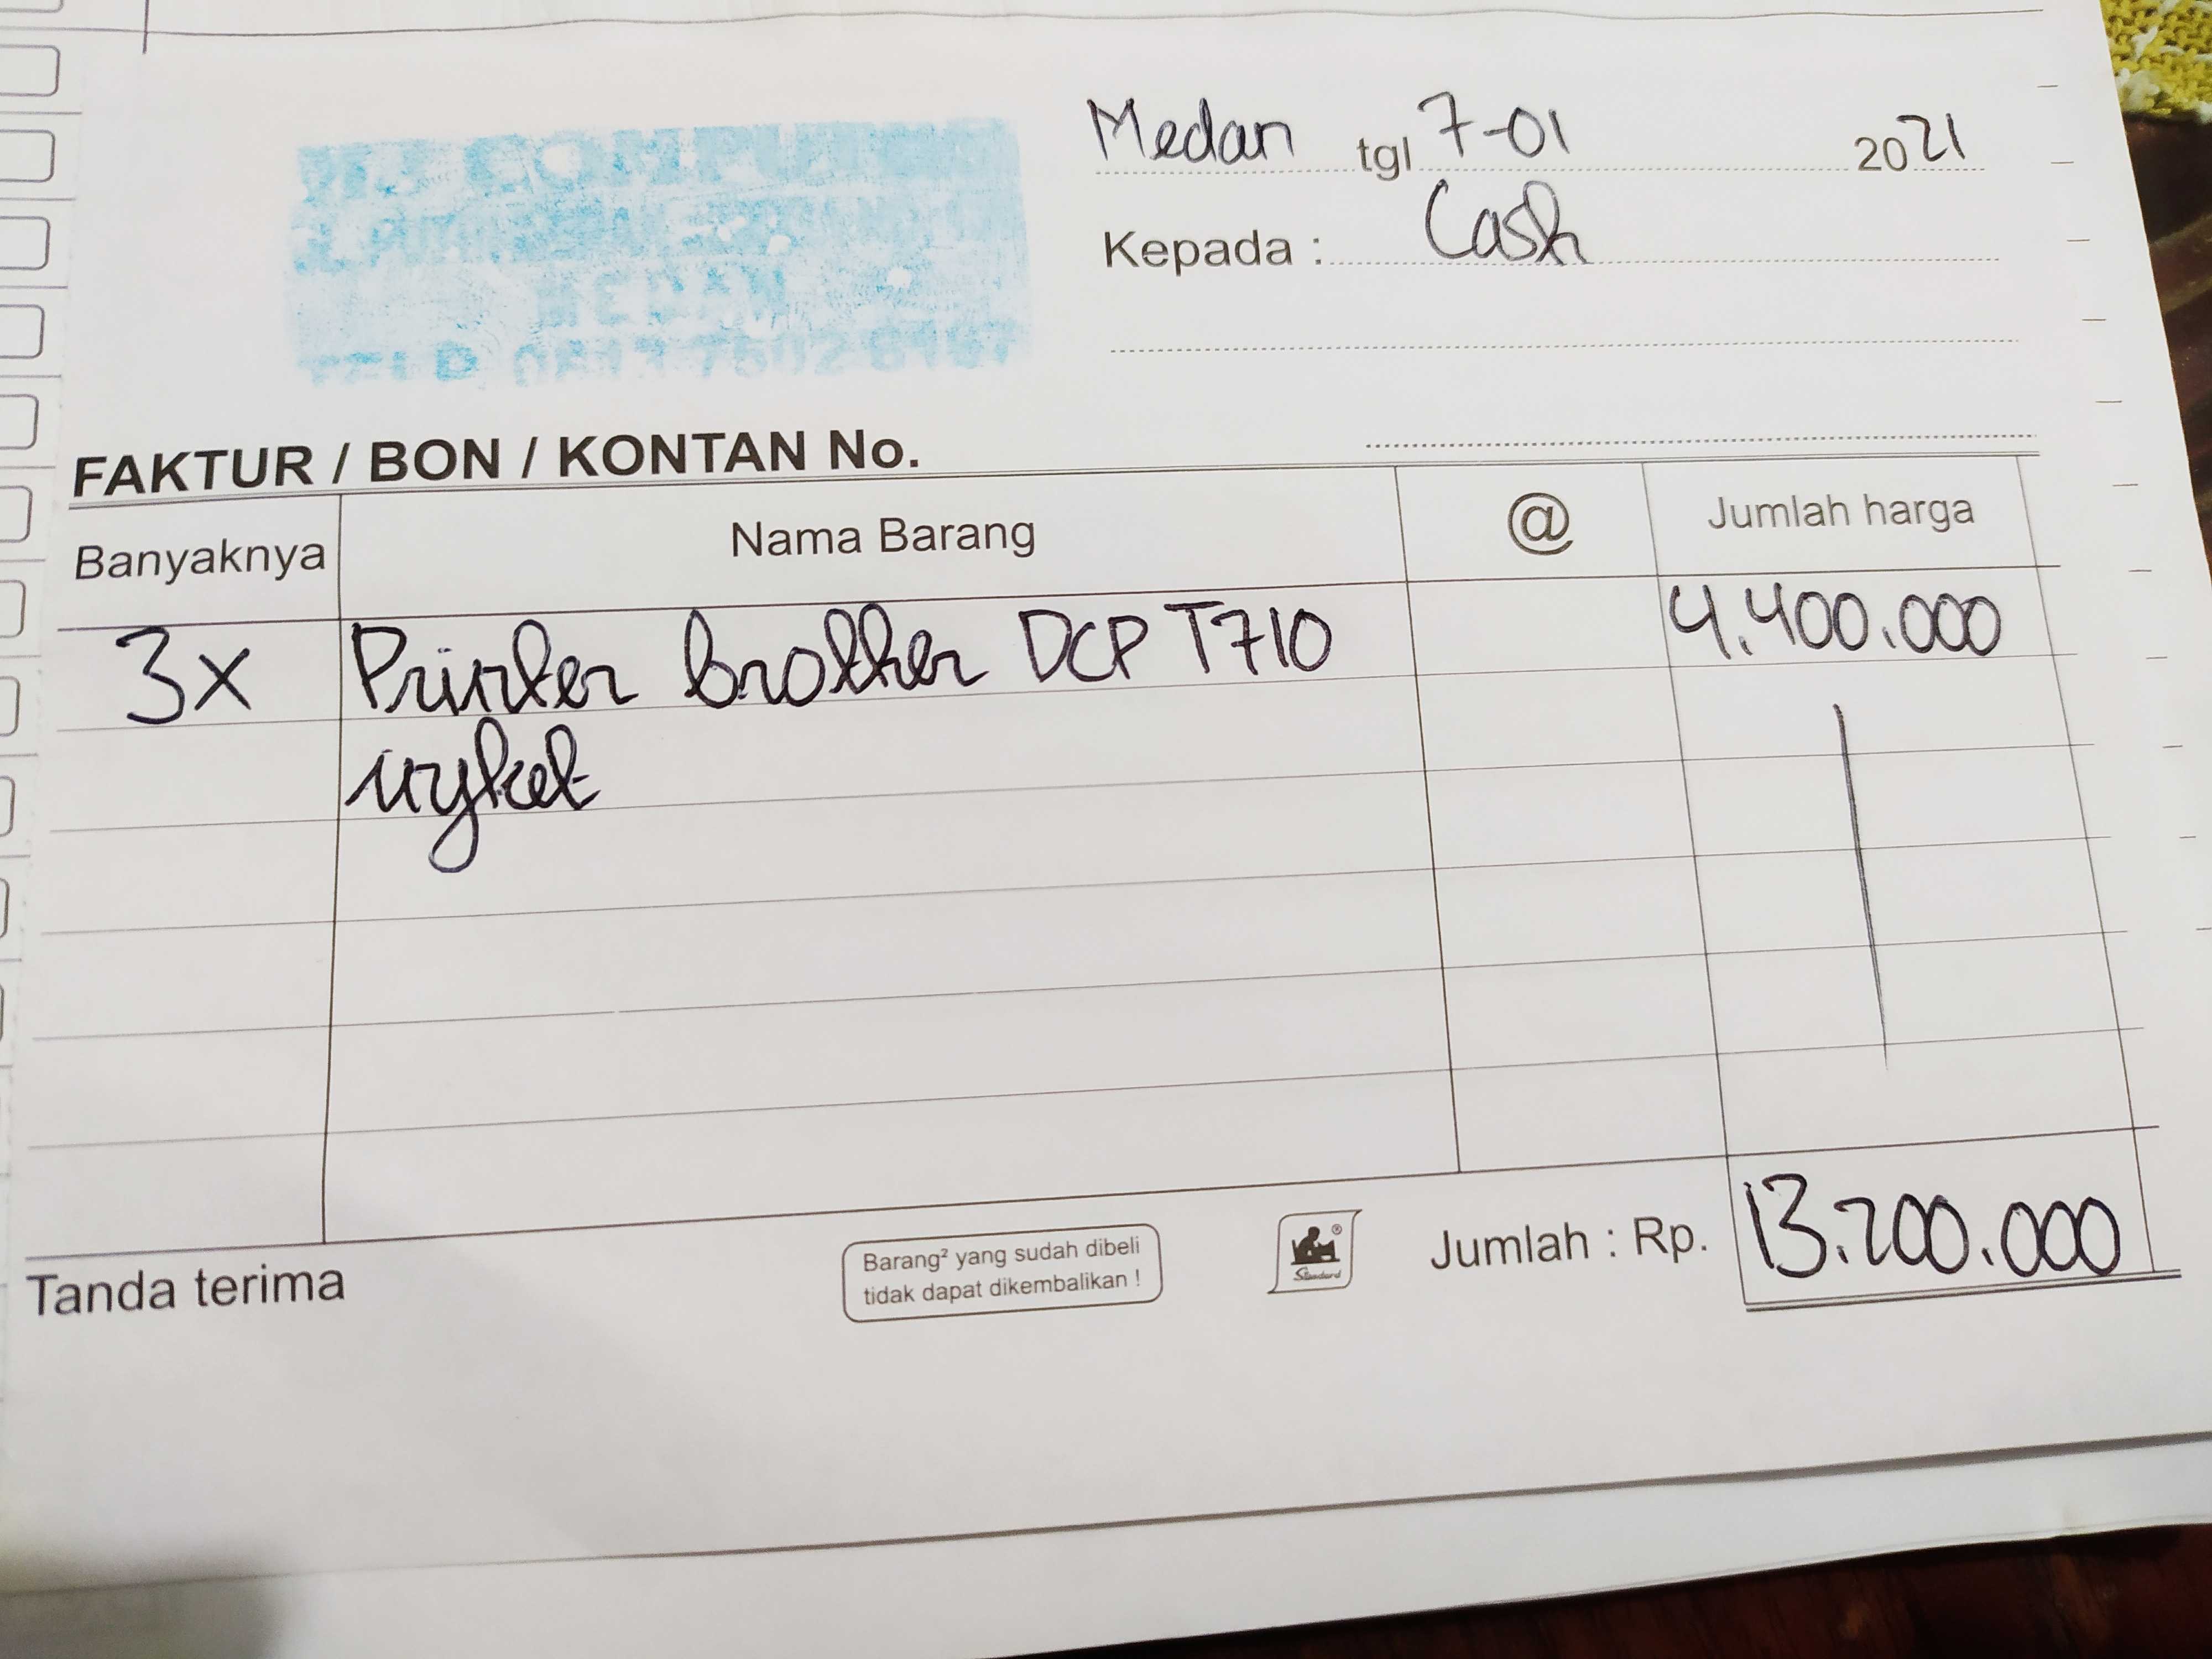 Medan tgl 7-01 2021
Kepada : Cash
MEDAN
TELP
FAKTUR / BON / KONTAN No.
Banyaknya Nama Barang @ Jumlah harga
3x Printer brother DCP T710 4.400.000
Tanda terima
Barang² yang sudah dibeli
tidak dapat dikembalikan !
Standard
Jumlah : Rp. 13.200.000